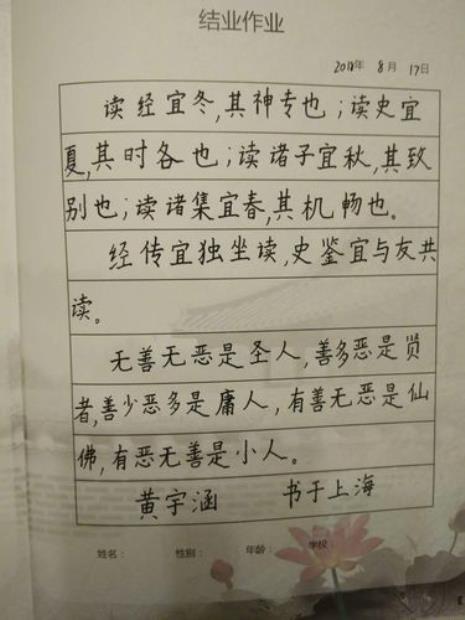 结业作业
2018年 8月 17日
读经宜冬,其神专也;读史宜
夏,其时各也;读诸子宜秋,其致
别也;读诸集宜春,其机畅也。
经传宜独坐读,史鉴宜与友共
读。
无善无恶是圣人,善多恶是贤
者,善少恶多是庸人,有善无恶是仙
佛,有恶无善是小人。
黄宇涵 书于上海
姓名: 性别: 年龄: 学校: